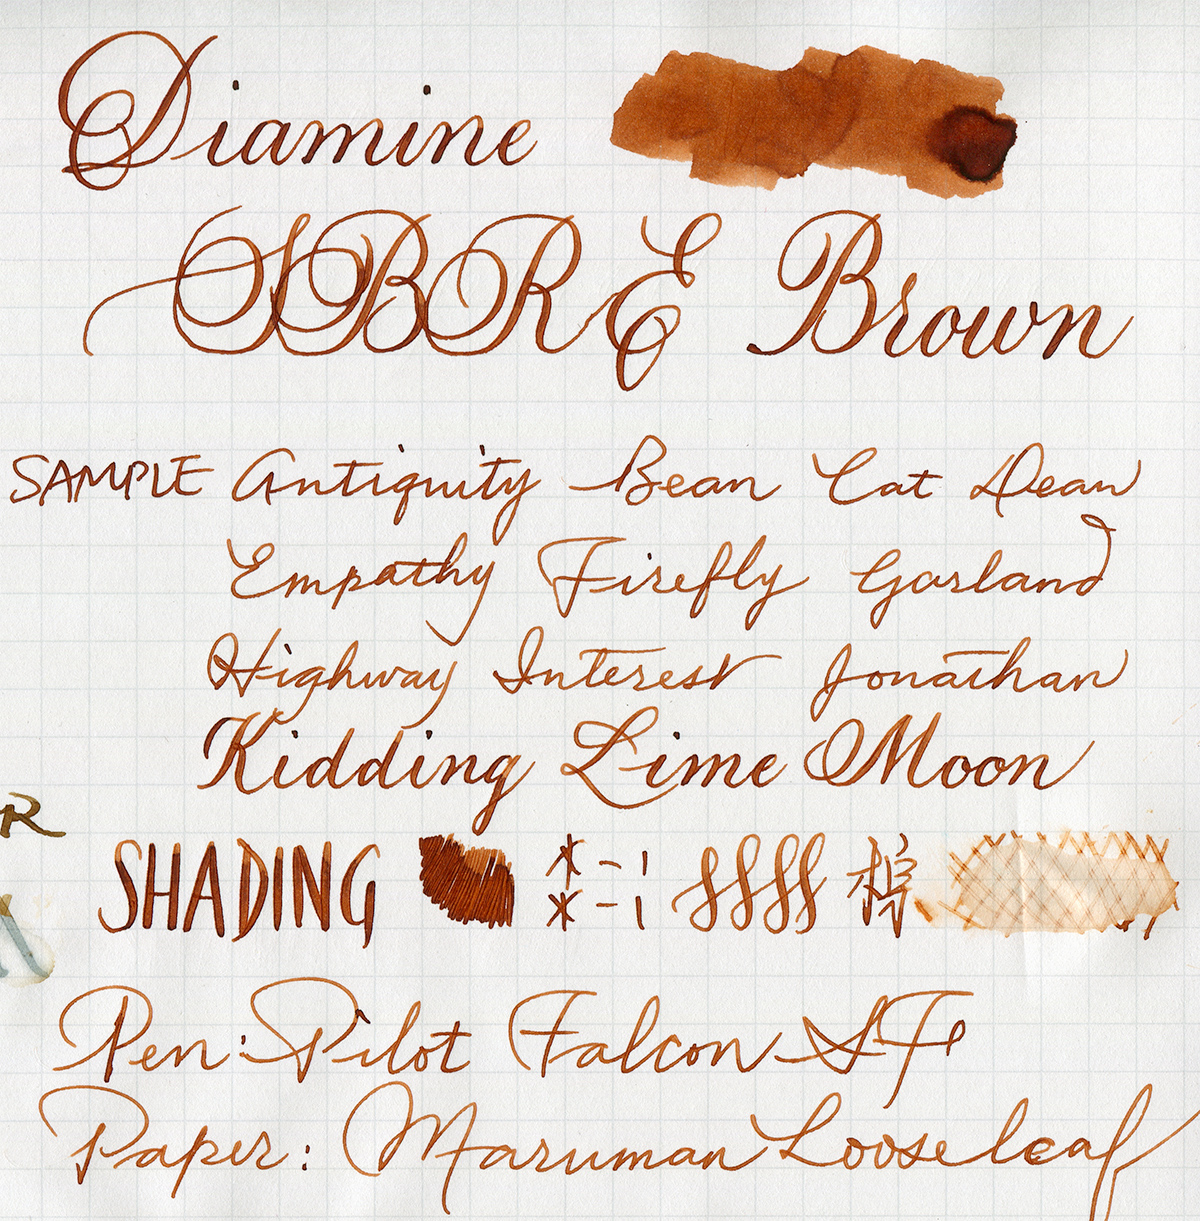 Diamine
SBRE Brown
SAMPLE Antiquity Bean Cat Dean
Empathy Firefly Garland
Highway Interest Jonathan
Kidding Lime Moon
R
SHADING
Pen: Pilot Falcon SF
Paper: Maruman Looseleaf